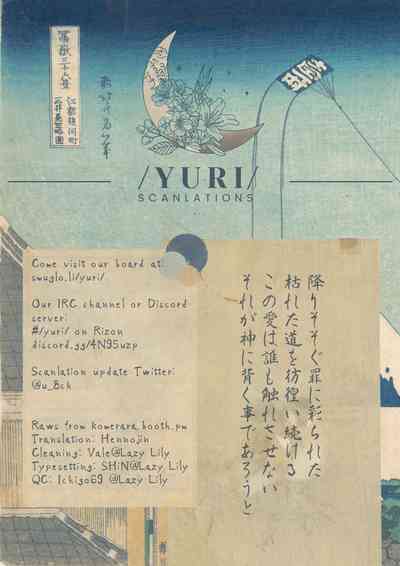 冨嶽三十六景
江都駿河町
三井見世略圖
/YURI/
SCANLATIONS
Come visit our board at:
smuglo.li/yuri/
Our IRC channel or Discord
server:
#/yuri/ on Rizon
discord.gg/4N95uzp
Scanlation update Twitter:
@u_8ch
Raws from komerara.booth.pm
Translation: Hennojin
Cleaning: Vale@Lazy Lily
Typesetting: SHiN@Lazy Lily
QC: Ichigo69 @Lazy Lily
降りそそぐ罪に彩られた
枯れた道を彷徨い続ける
この愛は誰も触れさせない
それが神に背く事であろうと